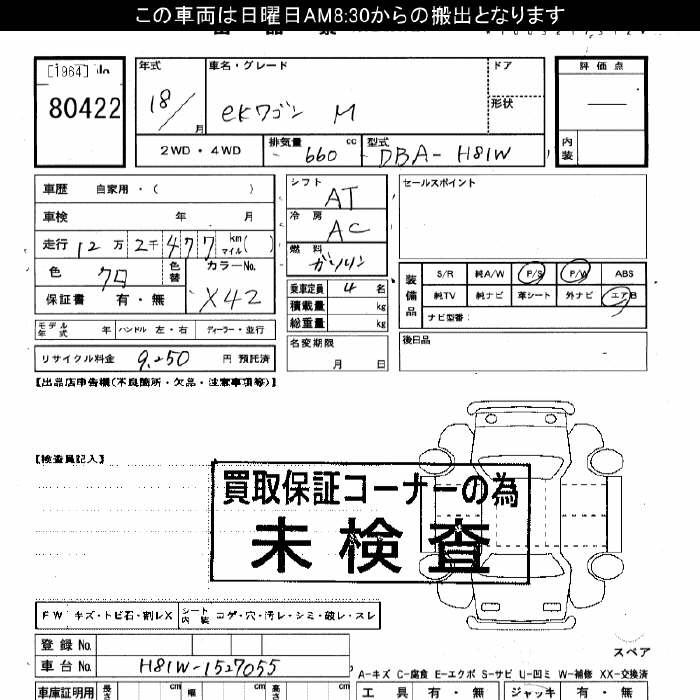 この車両は日曜日AM8:30からの搬出となります
[1964]
80422
年式
18/
月
車名・グレード
eKワゴン M
ドア
形状
評価点
内装
2WD・4WD
排気量 660 cc
型式 DBA-H81W
車歴 自家用・( )
車検 年 月
走行 12万 2千 477 km マイル ( )
色 クロ
色替
カラーNo. X42
保証書 有・無
シフト AT
冷房 AC
燃料 ガソリン
乗車定員 4 名
積載量 kg
総重量 kg
名変期限
月 日
セールスポイント
装備品
S/R 純A/W P/S P/W ABS
純TV 純ナビ 革シート 外ナビ エアB
ナビ型番:
後日品
モデル年式 年 ハンドル 左・右 ディーラー・並行
リサイクル料金 9,250 円 預託済
【出品店申告欄(不良箇所・欠品・注意事項等)】
【検査員記入】
買取保証コーナーの為
未検査
FW キズ・トビ石・割レX
シート内装 コゲ・穴・汚レ・シミ・破レ・スレ
登録No.
車台No. H81W-1527055
スペア
A-キズ C-腐食 E-エクボ S-サビ U-凹ミ W-補修 XX-交換済
車庫証明用 長さ cm 幅 cm 高さ cm
工具 有・無 ジャッキ 有・無